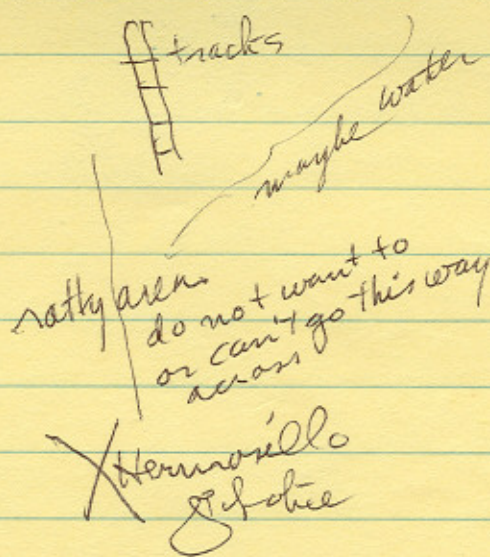 tracks
maybe water
ratty area
do not want to
or can't go this way
across
X Hermosillo